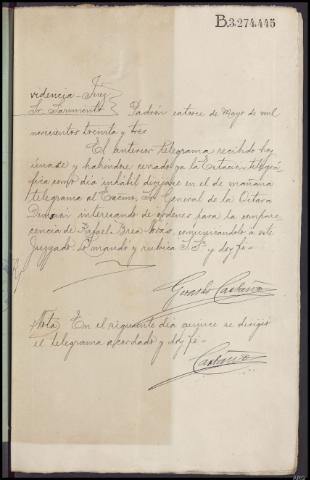 B.3.274.445
videncia - Juez
Sr. Sarmiento } Padrón catorce de Mayo de mil
novecientos treinta y tres
El anterior telegrama recibido hoy
únase y habiendose cerrado ya la Estación telegrá-
fica como día inhábil dirijase en el de mañana
telegrama al Excmo. Sr. General de la Octava
División interesando de ordenes para la compare-
cencia de Rafael Brea
Juzgado. Lo mandó y rubrica S.Sª. y doy fe-
Gerardo Castaño
Nota) En el siguiente día quince se dirigió
el telegrama acordado y doy fe-
Castaño